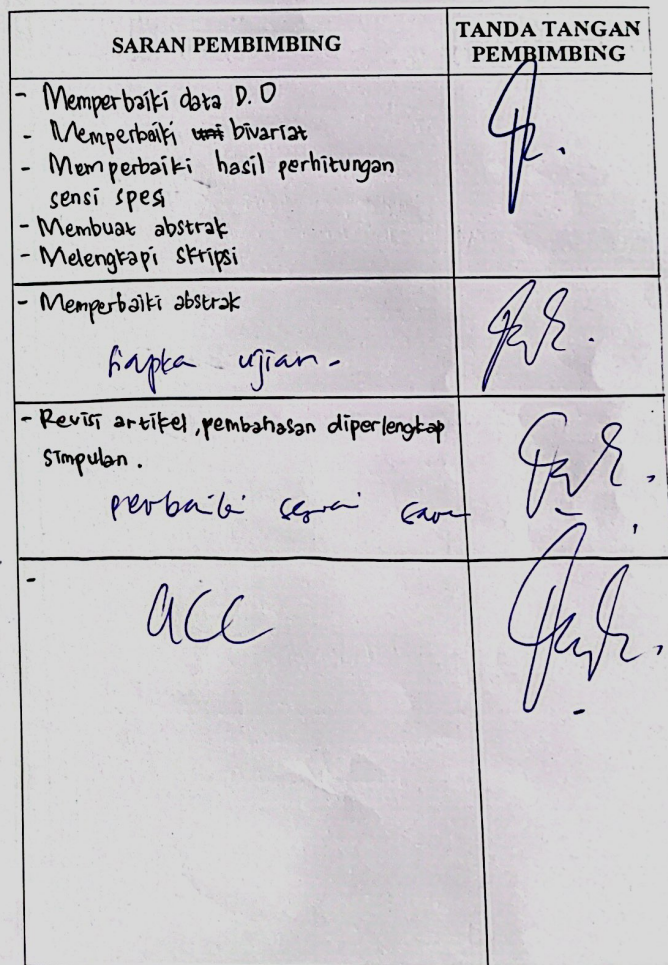 SARAN PEMBIMBING
TANDA TANGAN
PEMBIMBING
- Memperbaiki data D.O
- Memperbaiki bivariat
- Memperbaiki hasil perhitungan
sensi spesi
- Membuat abstrak
- Melengkapi skripsi
- Memperbaiki abstrak
siapka ujian -
- Revisi artikel, pembahasan diperlengkap
simpulan.
perbaiki sesuai saran
-
acc